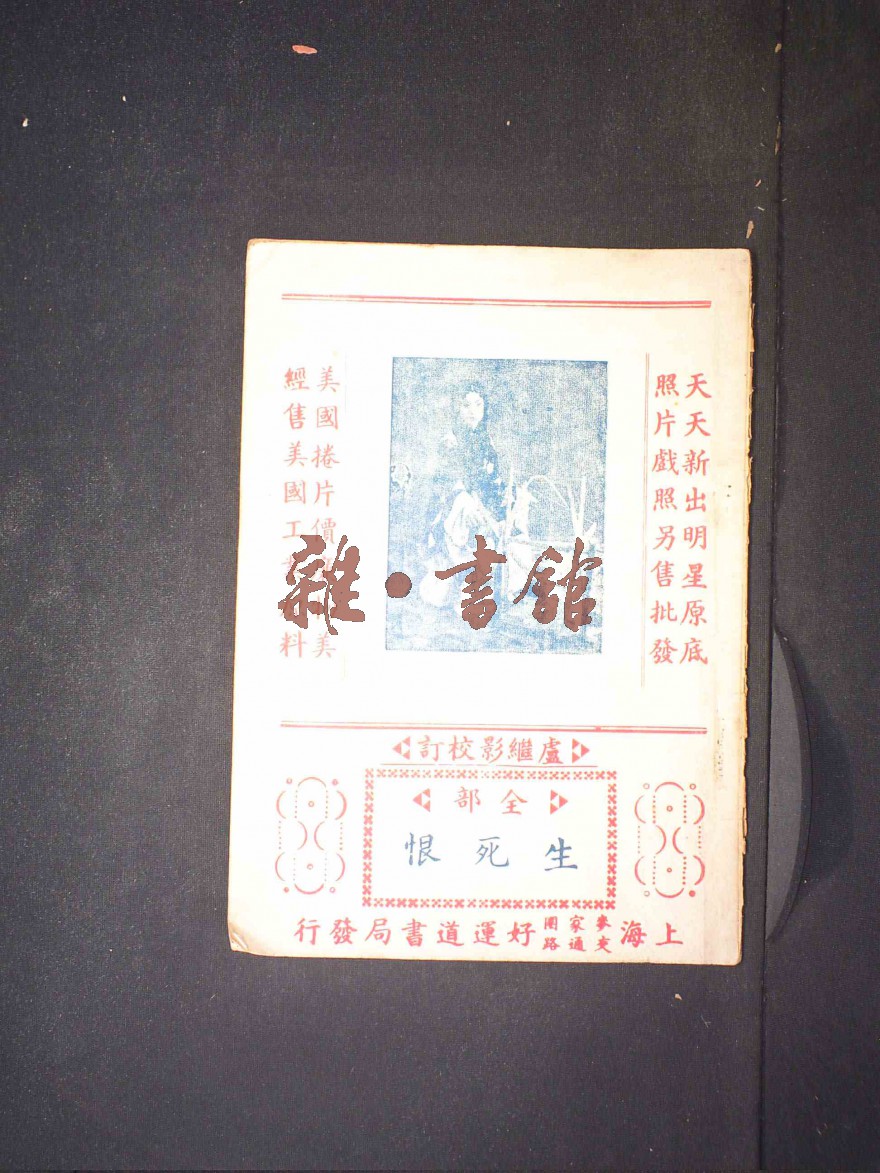 天天新出明星原底
照片戲照另售批發
美國捲片價
美
經售美國工
料
雜·書館
盧繼影校訂
全部
生死恨
上海
麥家圈
交通路
好運道書局發行